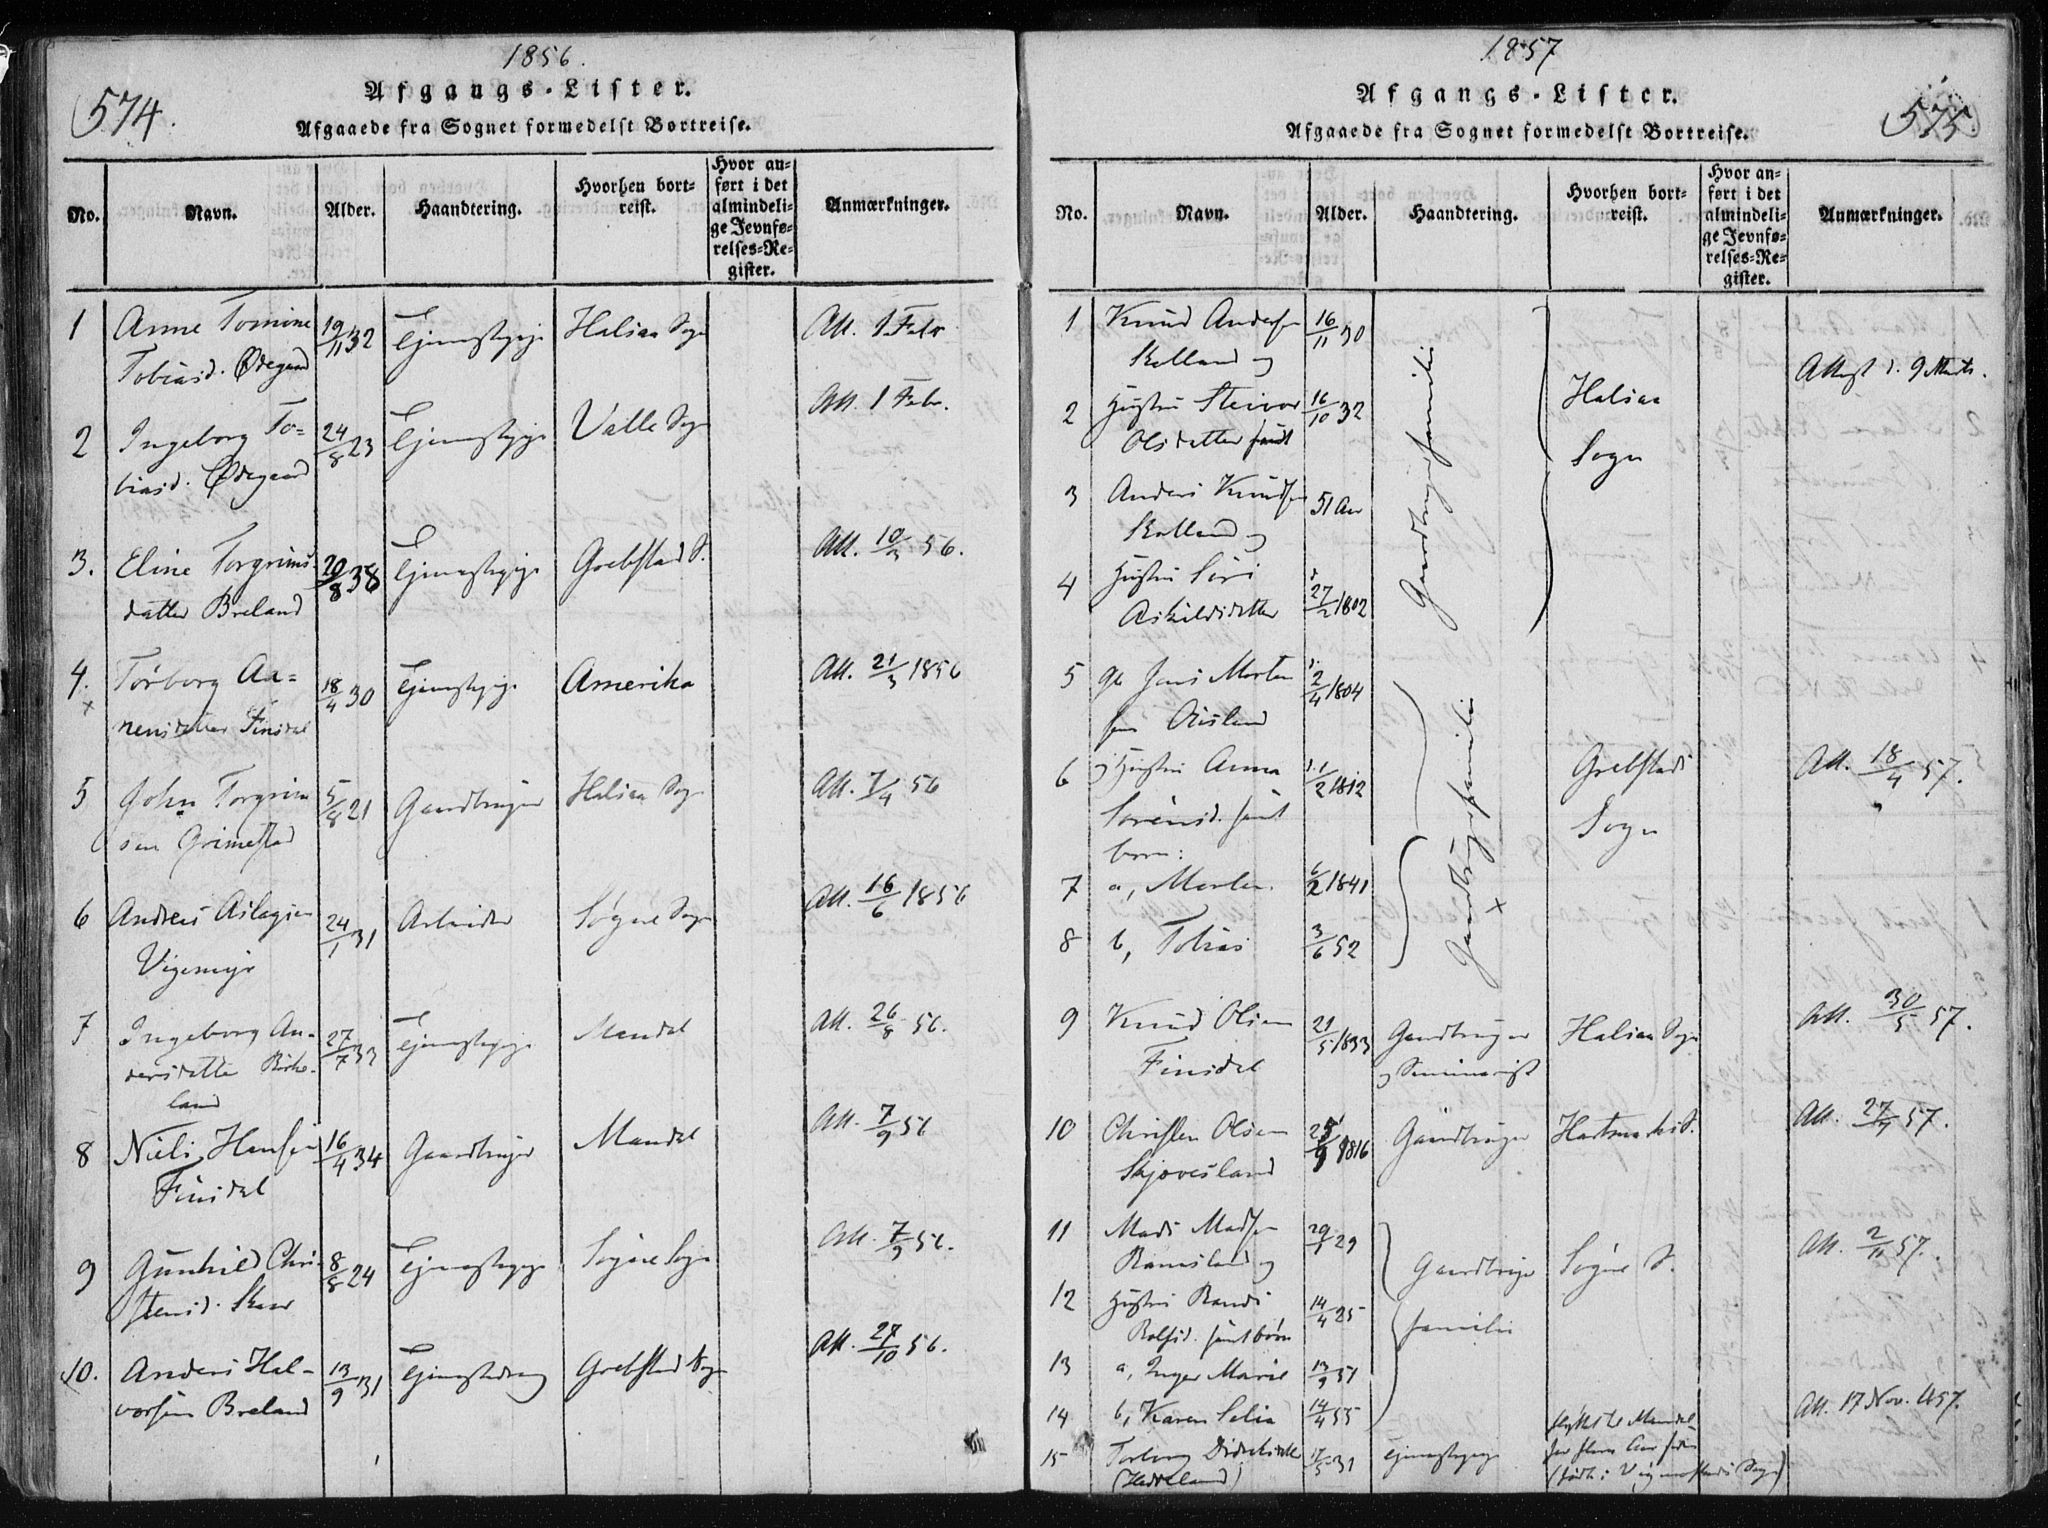 1856.
574.
Afgangs-Lister.
Afgaaede fra Sognet formedelst Bortreise.
No. Navn. Alder. Haandtering. Hvorhen bort-reist. Hvor an-ført i det almindeli-ge Jevnfø-relses-Re-gister. Anmærkninger.
1 Anne Tomine 19/11 32 Tjenestepige Halsaa Sogn Att. 1 Febr.
Tobiasd. Ødegaard
2 Ingeborg To- 24/8 23 Tjenestepige Valle Sogn Att. 1 Febr.
biasd. Ødegaard
3. Eline Torgrims 20/8 38 Tjenestepige Grebstad S. Att. 10/3 56.
datter Breland
4. Torborg Aa- 18/4 30 Tjenestepige Amerika Att. 21/3 1856
x nensdatter Finsdal
5 John Torgrim 5/8 21 Gaardbruger Halsaa Sogn Att. 7/4 56
sen Grimestad
6 Andreas Aslagsen 24/1 31 Arbeider Søgne Sogn Att. 16/6 1856
Vigemyr
7 Ingeborg An- 27/7 33 Tjenestepige Mandal Att. 26/8 56.
dersdatter Birke-
land
8 Niels Hansen 16/4 34 Gaardbruger Mandal Att. 7/9 56
Finsdal
9 Gunhild Chri- 8/8 24 Tjenestepige Søgne Sogn Att. 7/9 56.
stensd. Skaar
10. Anders Hal- 13/9 31 Tjenestedreng Grebstad Sogn Att. 27/10 56.
vorsen Breland
1857
575
Afgangs-Lister.
Afgaaede fra Sognet formedelst Bortreise.
No. Navn. Alder. Haandtering. Hvorhen bort-reist. Hvor an-ført i det almindeli-ge Jevnfø-relses-Re-gister. Anmærkninger.
1 Knud Andersen 16/11 30 Gaardbrugerfamilie Halsaa Sogn Attest d. 9 Marts.
Skolland og
2 Hustru Steivor 16/10 32
Olsdatter samt
3 Anders Knudsen 51 Aar
Skolland og
4 Hustru Siri 27/2 1802
Askildsdatter
5 Jens Morten 2/4 1804 Gaardbrugerfamilie x Grebstads Sogn Att. 18/4 57.
sen Ousland
6 Hustru Anna 1/2 1812
Sørensd. samt
børn:
7 a, Morten. 6/2 1841
8 b, Tobias 3/6 52
9 Knud Olsen 21/5 1833 Gaardbruger Halsaa Sogn Att. 30/5 57.
Finsdal og Seminarist
10 Christen Olsen 25/9 1816 Gaardbruger Hartmarks S. Att. 27/7 57.
Skjøvesland
11 Mads Madsen 29/1 29 Gaardbruger Søgne S. Att. 2/11 57.
Ramsland og familie
12 Hustru Randi 14/4 25
Rolfsd. samt børn
13 a, Inger Marie 13/9 51
14 b, Karen Selia 14/4 55
15 Torborg Didriksdtr 17/5 31 Tjenestepige flyttet til Mandal Att. 17 Nov. 1857.
(Hedeland) for flere Aar siden
(født i Vigmostads Sogn)